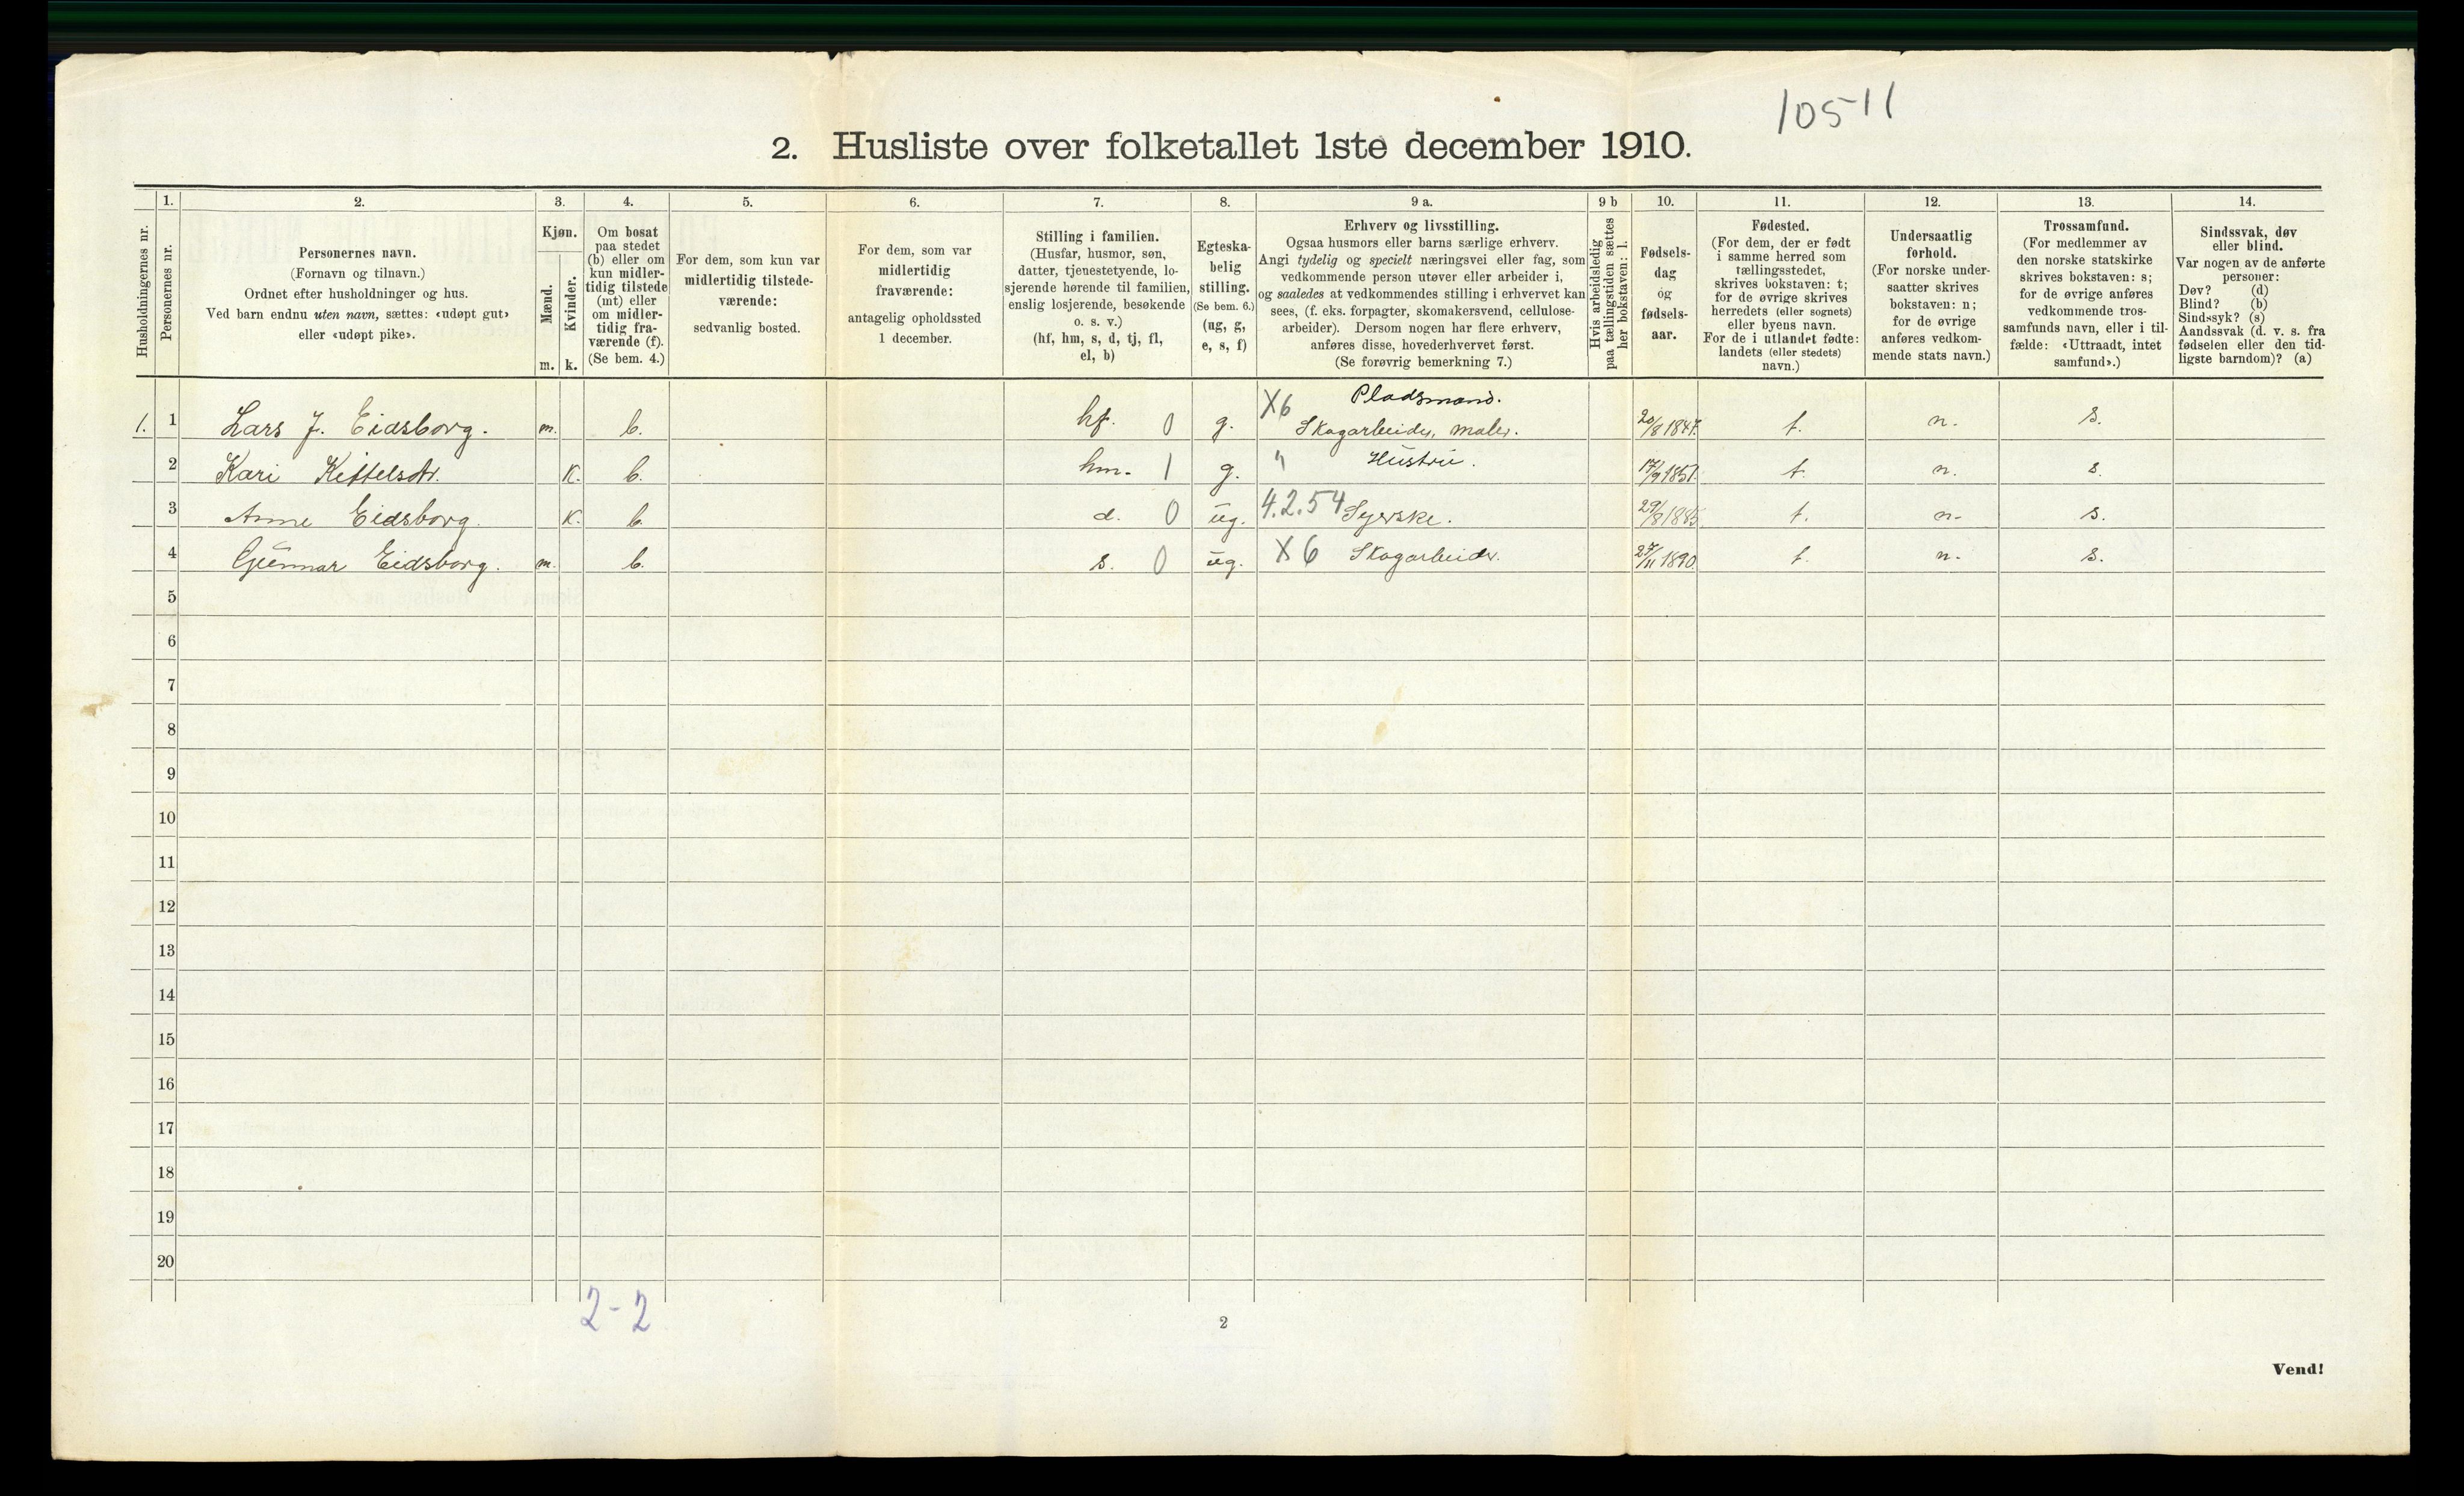 10511
2. Husliste over folketallet 1ste december 1910.
1. 2. 3. 4. 5. 6. 7. 8. 9 a. 9 b 10. 11. 12. 13. 14.
Husholdningernes nr.
Personernes nr.
Personernes navn.
(Fornavn og tilnavn.)
Ordnet efter husholdninger og hus.
Ved barn endnu uten navn, sættes: «udøpt gut»
eller «udøpt pike».
Kjøn.
Mænd.
m.
Kvinder.
k.
Om bosat
paa stedet
(b) eller om
kun midler-
tidig tilstede
(mt) eller
om midler-
tidig fra-
værende (f).
(Se bem. 4.)
For dem, som kun var
midlertidig tilstede-
værende:
sedvanlig bosted.
For dem, som var
midlertidig
fraværende:
antagelig opholdssted
1 december.
Stilling i familien.
(Husfar, husmor, søn,
datter, tjenestetyende, lo-
sjerende hørende til familien,
enslig losjerende, besøkende
o. s. v.)
(hf, hm, s, d, tj, fl,
el, b)
Egteska-
belig
stilling.
(Se bem. 6.)
(ug, g,
e, s, f)
Erhverv og livsstilling.
Ogsaa husmors eller barns særlige erhverv.
Angi tydelig og specielt næringsvei eller fag, som
vedkommende person utøver eller arbeider i,
og saaledes at vedkommendes stilling i erhvervet kan
sees, (f. eks. forpagter, skomakersvend, cellulose-
arbeider). Dersom nogen har flere erhverv,
anføres disse, hovederhvervet først.
(Se forøvrig bemerkning 7.)
Hvis arbeidsledig
paa tællingstiden sættes
her bokstaven: l.
Fødsels-
dag
og
fødsels-
aar.
Fødested.
(For dem, der er født
i samme herred som
tællingsstedet,
skrives bokstaven: t;
for de øvrige skrives
herredets (eller sognets)
eller byens navn.
For de i utlandet fødte:
landets (eller stedets)
navn.)
Undersaatlig
forhold.
(For norske under-
saatter skrives
bokstaven: n;
for de øvrige
anføres vedkom-
mende stats navn.)
Trossamfund.
(For medlemmer av
den norske statskirke
skrives bokstaven: s;
for de øvrige anføres
vedkommende tros-
samfunds navn, eller i til-
fælde: «Uttraadt, intet
samfund».)
Sindssvak, døv
eller blind.
Var nogen av de anførte
personer:
Døv? (d)
Blind? (b)
Sindssyk? (s)
Aandssvak (d. v. s. fra
fødselen eller den tid-
ligste barndom)? (a)
Pladsmand.
1. 1 Lars J. Eidsborg. m. b. hf. 0 g. X6 Skogarbeider, maler. 20/8 1847. t. n. s.
2 Kari Kittelsdtr. k. b. hm. 1 g. " Hustru. 17/9 1851. t. n. s.
3 Anne Eidsborg. k. b. d. 0 ug. 4.2.54 Syerske. 29/8 1885 t. n. s.
4 Gunnar Eidsborg. m. b. s. 0 ug. X6 Skogarbeider. 27/11 1890. t. n. s.
5
6
7
8
9
10
11
12
13
14
15
16
17
18
19
20
2-2
2
Vend!